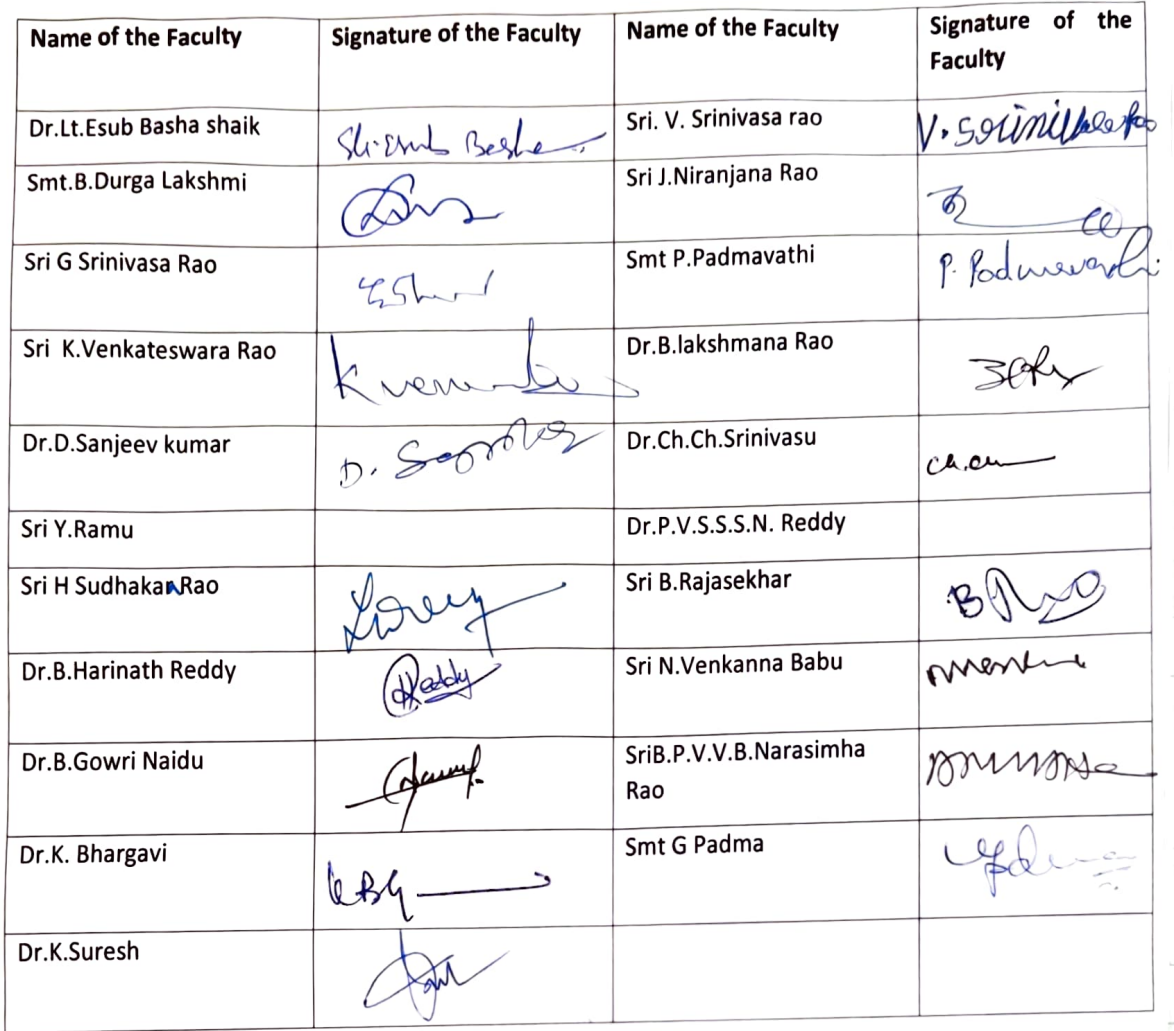 Name of the Faculty Signature of the Faculty Name of the Faculty Signature of the
Faculty
Dr.Lt.Esub Basha shaik Sk.Esub Basha Sri. V. Srinivasa rao V. Srinivasa Rao
Smt.B.Durga Lakshmi Sri J.Niranjana Rao
Sri G Srinivasa Rao Smt P.Padmavathi P. Padmavathi
Sri K.Venkateswara Rao Dr.B.lakshmana Rao
Dr.D.Sanjeev kumar D. Dr.Ch.Ch.Srinivasu
Sri Y.Ramu Dr.P.V.S.S.S.N. Reddy
Sri H Sudhakar Rao Sri B.Rajasekhar
Dr.B.Harinath Reddy Reddy Sri N.Venkanna Babu
Dr.B.Gowri Naidu SriB.P.V.V.B.Narasimha
Rao
Dr.K. Bhargavi Smt G Padma
Dr.K.Suresh